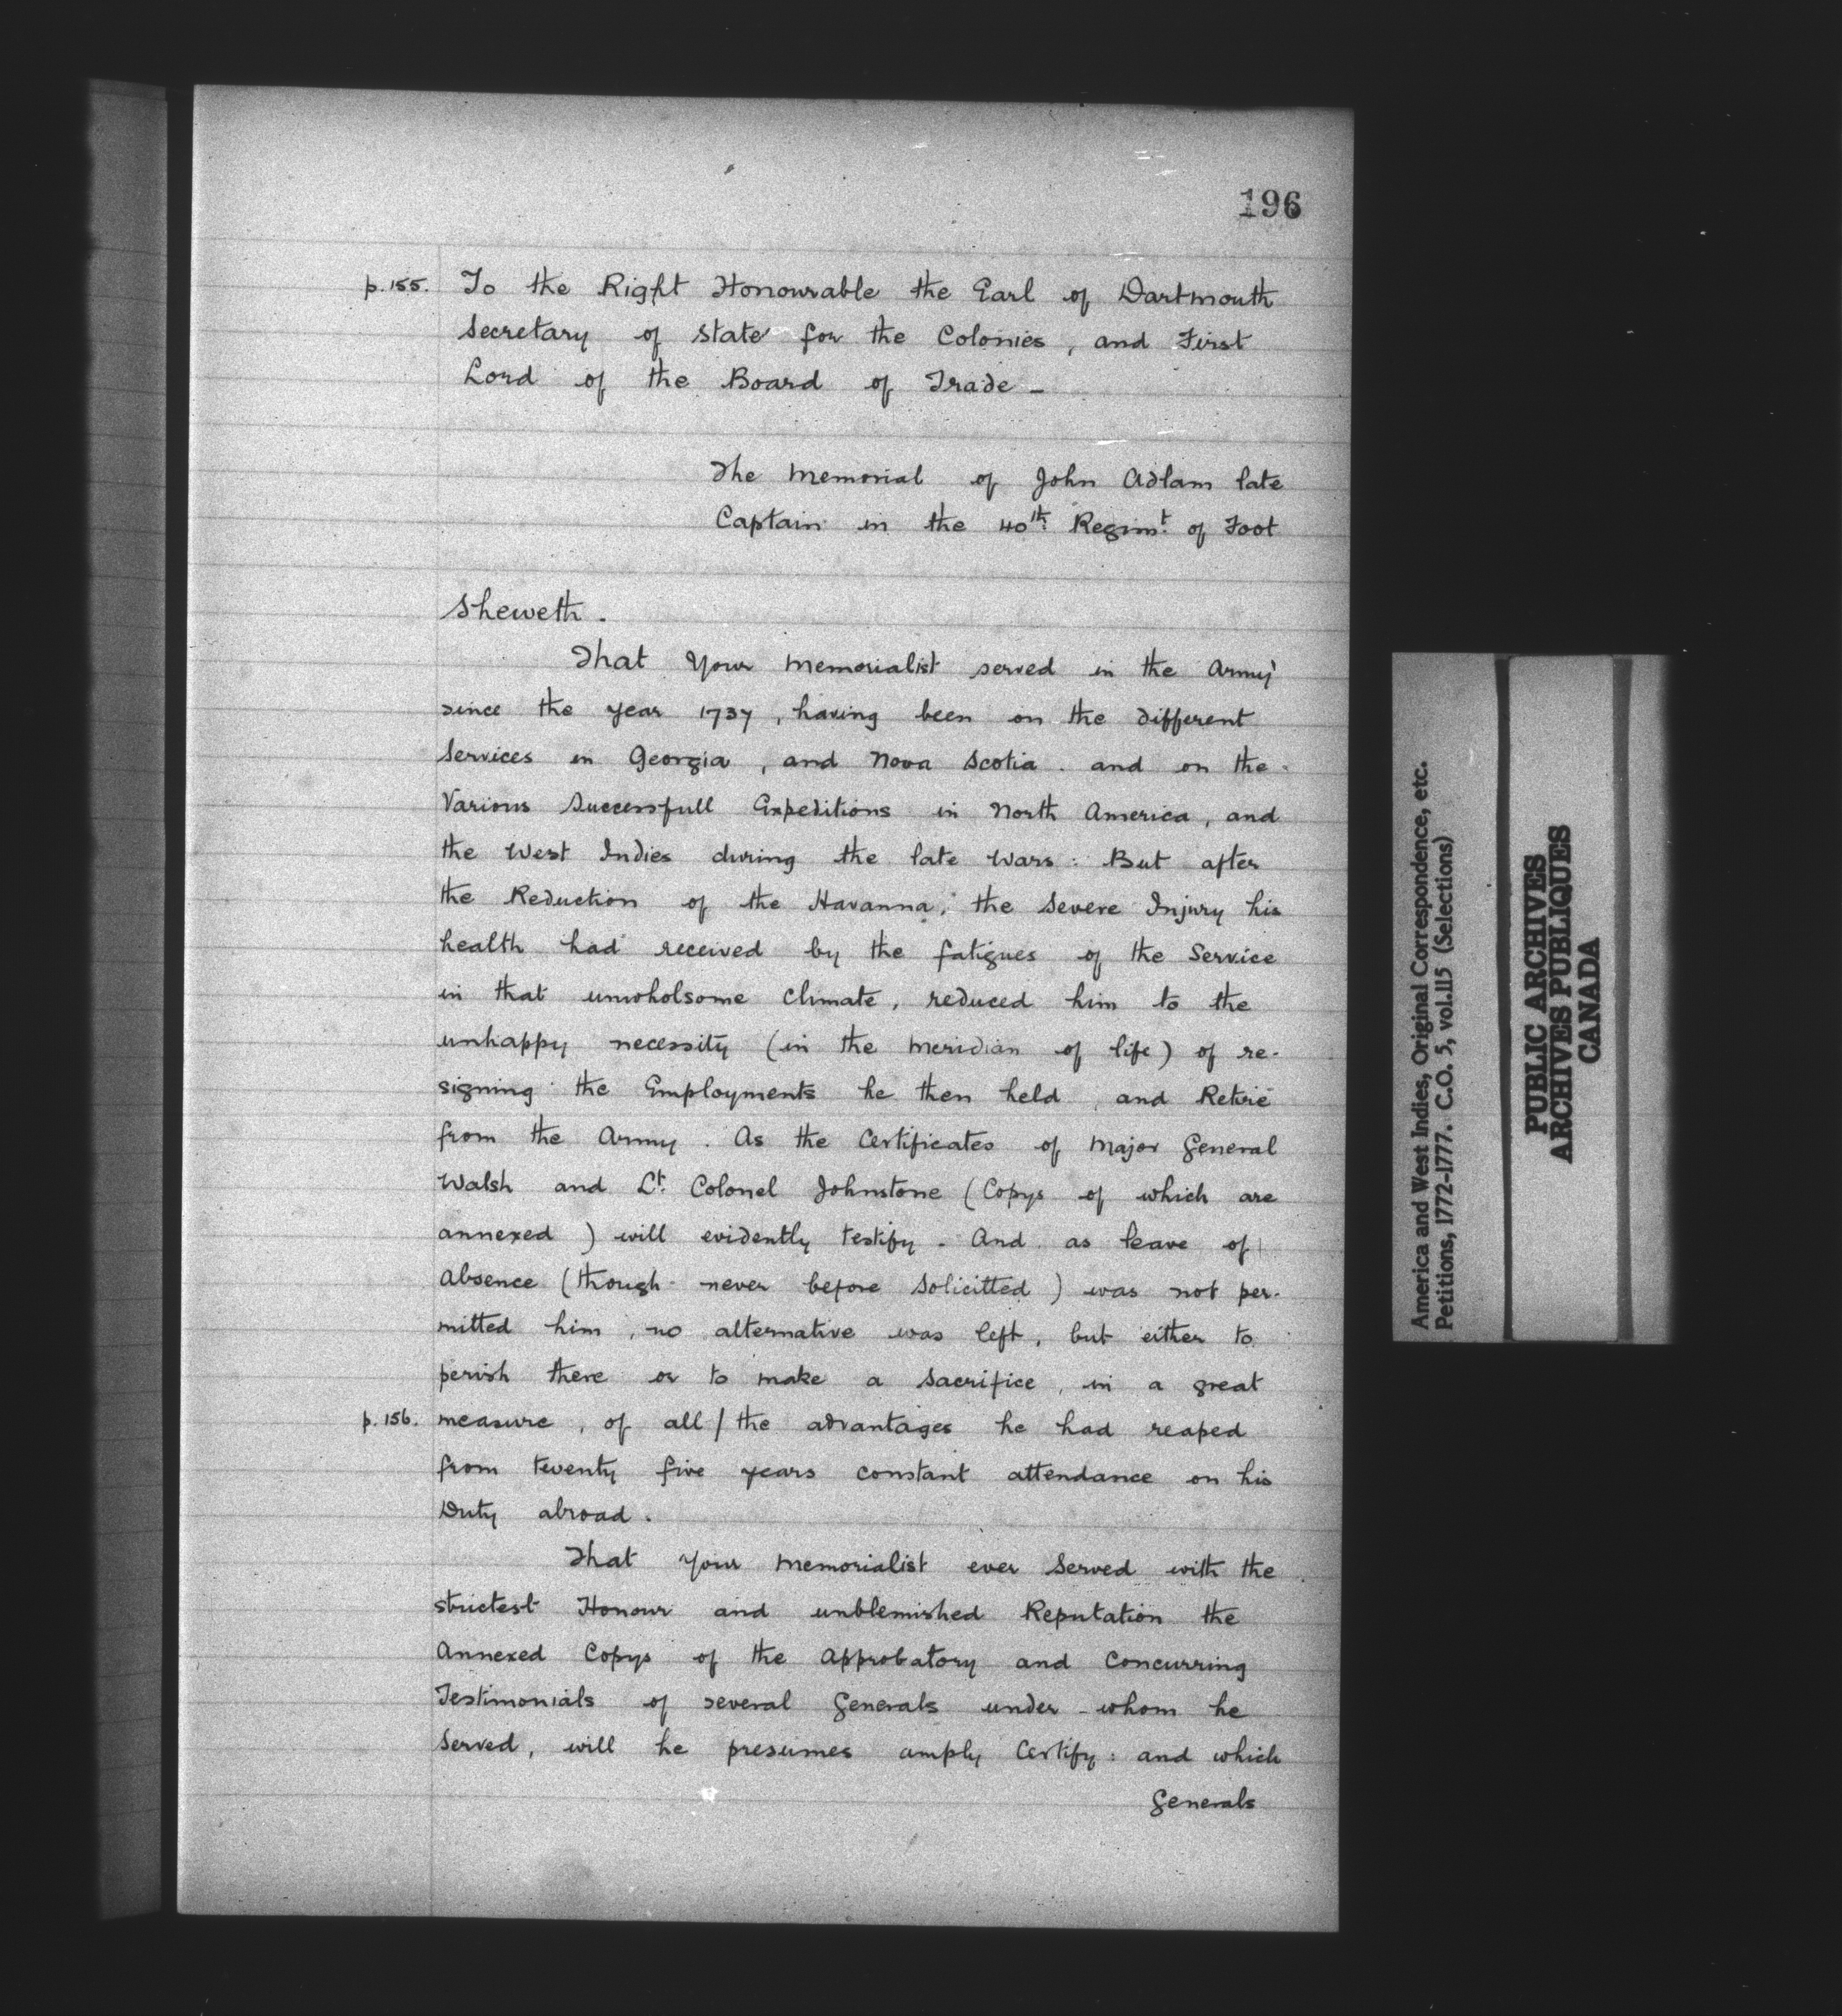 196
p.155. To the Right Honourable the Earl of Dartmouth
Secretary of State for the Colonies, and First
Lord of the Board of Trade -
The Memorial of John Adlam late
Captain in the 40th Regimt. of Foot
Sheweth.
That Your Memorialist served in the Army
since the year 1737, having been on the different
Services in Georgia, and Nova Scotia. and on the
Various Successfull Expeditions in North America, and
the West Indies during the late Wars: But after
the Reduction of the Havanna, the Severe Injury his
health had received by the fatigues of the Service
in that unwholsome Climate, reduced him to the
unhappy necessity (in the Meridian of life) of re-
signing the Employments he then held, and Retire
from the Army. As the Certificates of Major General
Walsh and Lt. Colonel Johnstone (Copys of which are
annexed) will evidently testify. And as leave of
Absence (though never before Solicitted) was not per-
mitted him, no alternative was left, but either to
perish there or to make a Sacrifice, in a great
p.156. measure, of all / the advantages he had reaped
from twenty five years constant attendance on his
Duty abroad.
That Your Memorialist ever Served with the
strictest Honour and unblemished Reputation the
Annexed Copys of the Approbatory and Concurring
Testimonials of several Generals under whom he
Served, will he presumes amply Certify: and which
Generals
America and West Indies, Original Correspondence, etc.
Petitions, 1772-1777. C.O. 5, vol.115 (Selections)
PUBLIC ARCHIVES
ARCHIVES PUBLIQUES
CANADA